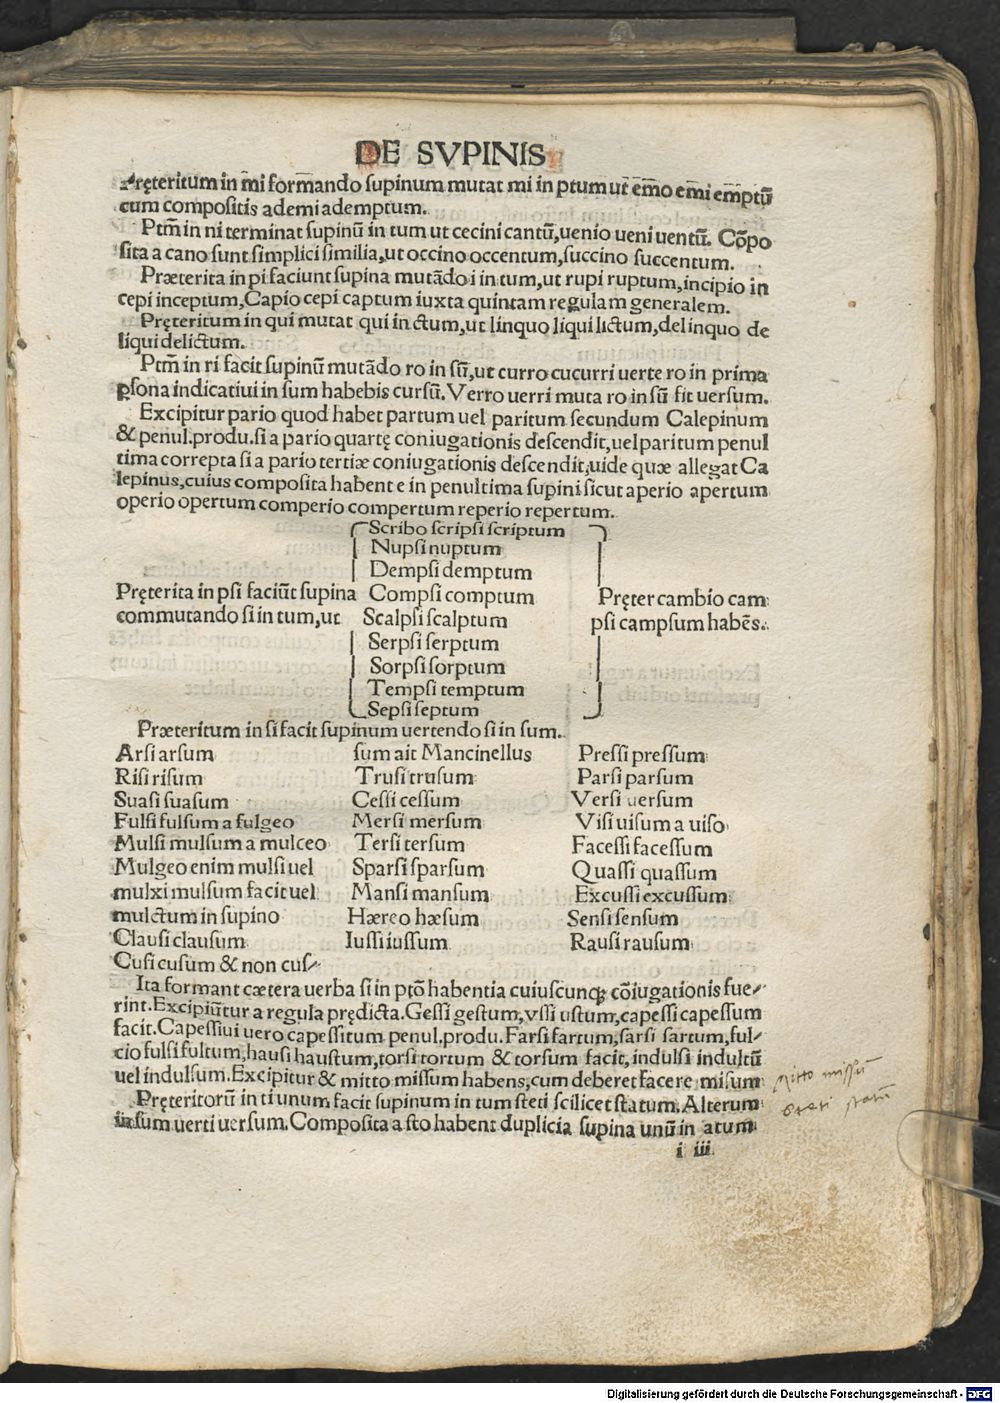 DE SVPINIS
Pręteritum in mi formando supinum mutat mi in ptum ut em̄o em̄i em̄ptū
cum compositis ademi ademptum.
Ptm̄ in ni terminat supinū in tum ut cecini cantū, uenio ueni uentū. Cōpo
sita a cano sunt simplici similia, ut occino occentum, succino succentum.
Præterita in pi faciunt supina mutādo i in tum, ut rupi ruptum, incipio in
cepi inceptum, Capio cepi captum iuxta quintam regulam generalem.
Pręteritum in qui mutat qui in ctum, ut linquo liqui lictum, delinquo de
liqui delictum.
Ptm̄ in ri facit supinū mutādo ro in sū, ut curro cucurri uerte ro in prima
ꝑsona indicatiui in sum habebis cursū. Verro uerri muta ro in sū fit uersum.
Excipitur pario quod habet partum uel paritum secundum Calepinum
& penul. produ. si a pario quartę coniugationis descendit, uel paritum penul
tima correpta si a pario tertiæ coniugationis descendit, uide quæ allegat Ca
lepinus, cuius composita habent e in penultima supini sicut aperio apertum
operio opertum comperio compertum reperio repertum.
Scribo scripsi scriptum
Nupsi nuptum
Dempsi demptum
Pręterita in psi faciūt supina Compsi comptum Pręter cambio cam
commutando si in tum, ut Scalpsi scalptum psi campsum habēs.
Serpsi serptum
Sorpsi sorptum
Tempsi temptum
Sepsi septum
Præteritum in si facit supinum uertendo si in sum.
Arsi arsum sum ait Mancinellus Pressi pressum
Risi risum Trusi trusum Parsi parsum
Suasi suasum Cessi cessum Versi uersum
Fulsi fulsum a fulgeo Mersi mersum Visi uisum a uiso
Mulsi mulsum a mulceo Tersi tersum Facessi facessum
Mulgeo enim mulsi uel Sparsi sparsum Quassi quassum
mulxi mulsum facit uel Mansi mansum Excussi excussum
mulctum in supino Hæreo hæsum Sensi sensum
Clausi clausum Iussi iussum Rausi rausum
Cusi cusum & non cus⸗
Ita formant cætera uerba si in ptō habentia cuiuscunqꝫ cōiugationis fue⸗
rint. Excipiūtur a regula prędicta. Gessi gestum, vssi ustum, capessi capessum
facit. Capessiui uero capessitum penul. produ. Farsi fartum, sarsi sartum, ful⸗
cio fulsi fultum, hausi haustum, torsi tortum & torsum facit, indulsi indultū
uel indulsum. Excipitur & mitto missum habens, cum deberet facere misum
Pręteritorū in ti unum facit supinum in tum steti scilicet statum. Alterum
in sum uerti uersum. Composita a sto habent duplicia supina unū in atum
i iii
mitto missū
steti statū
Digitalisierung gefördert durch die Deutsche Forschungsgemeinschaft - DFG